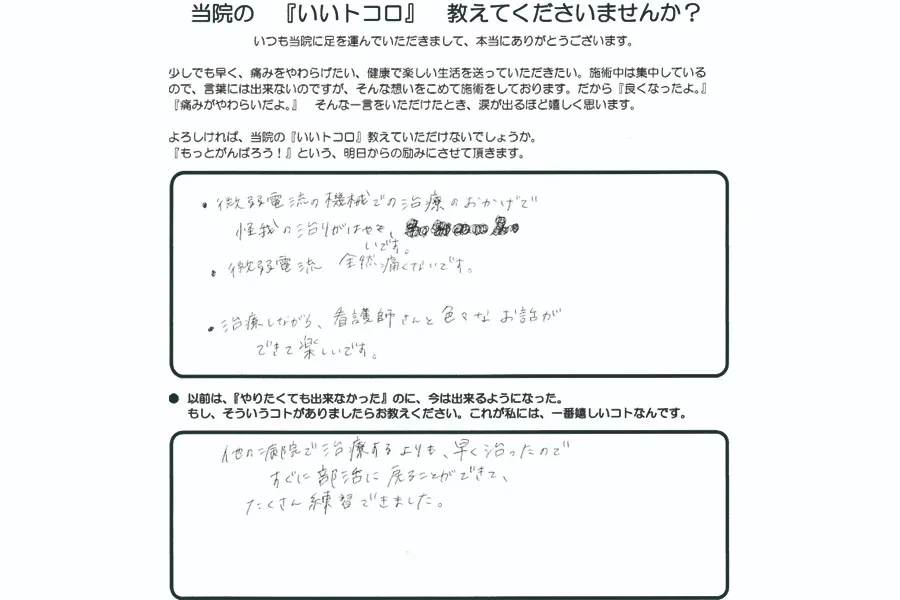 当院の 『いいトコロ』 教えてくださいませんか？
いつも当院に足を運んでいただきまして、本当にありがとうございます。
少しでも早く、痛みをやわらげたい、健康で楽しい生活を送っていただきたい。施術中は集中している
ので、言葉には出来ないのですが、そんな想いをこめて施術をしております。だから『良くなったよ。』
『痛みがやわらいだよ。』 そんな一言をいただけたとき、涙が出るほど嬉しく思います。
よろしければ、当院の『いいトコロ』教えていただけないでしょうか。
『もっとがんばろう！』という、明日からの励みにさせて頂きます。
・微弱電流の機械での治療のおかげで
怪我の治りがはやく、
いです。
・微弱電流 全然痛くないです。
・治療しながら、看護師さんと色々なお話が
できて楽しいです。
● 以前は、『やりたくても出来なかった』のに、今は出来るようになった。
もし、そういうコトがありましたらお教えください。これが私には、一番嬉しいコトなんです。
他の病院で治療するよりも、早く治ったので
すぐに部活に戻ることができて、
たくさん練習できました。